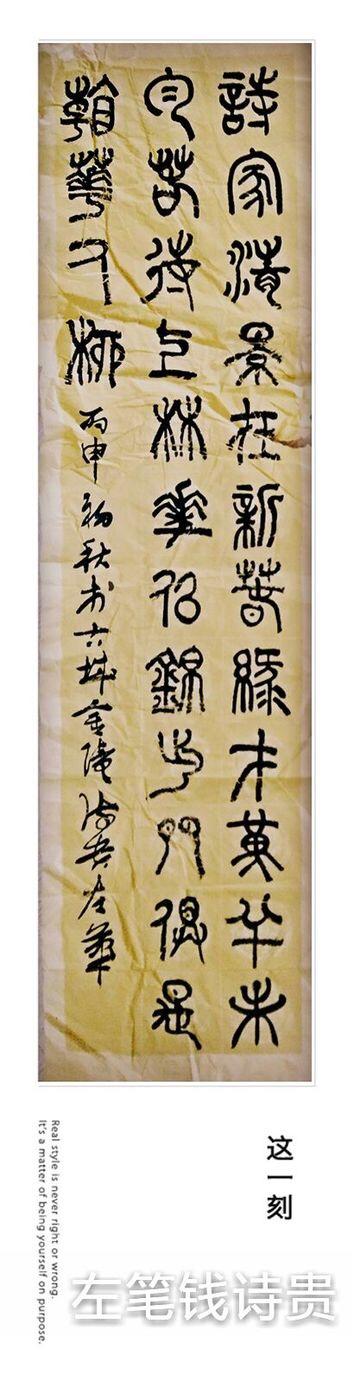 詩家清景在新春綠才黃半未
勻若待上林華似錦出門俱是
看華人柳
丙申初秋於古城金陵詩貴左筆
这一刻
Real style is never right or wrong.
It's a matter of being yourself on purpose.
左笔钱诗贵